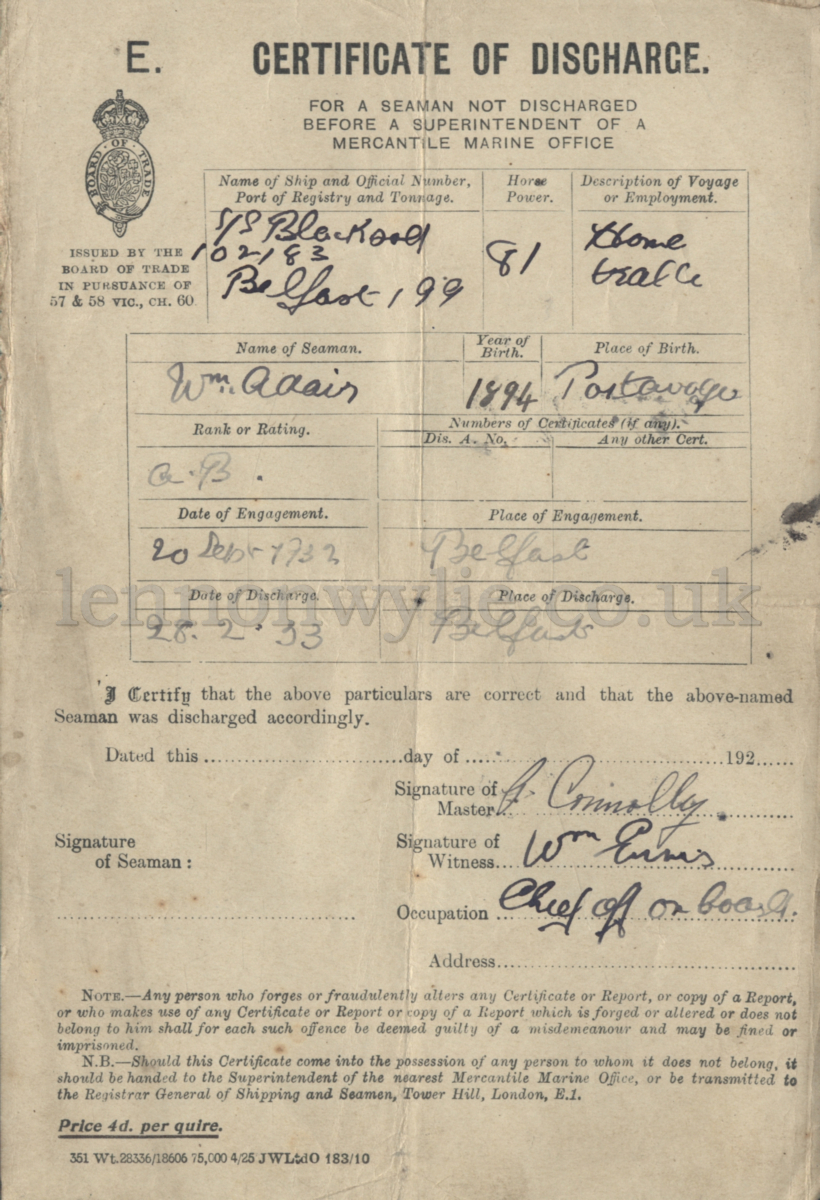 E. CERTIFICATE OF DISCHARGE.
FOR A SEAMAN NOT DISCHARGED
BEFORE A SUPERINTENDENT OF A
MERCANTILE MARINE OFFICE
BOARD OF TRADE
ISSUED BY THE
BOARD OF TRADE
IN PURSUANCE OF
57 & 58 VIC., CH. 60
Name of Ship and Official Number,
Port of Registry and Tonnage.
Horse
Power.
Description of Voyage
or Employment.
S/S
102183
Belfast 199
81
Home
trade
Name of Seaman.
Year of
Birth.
Place of Birth.
Wm. Adair
1894
Portavogie
Rank or Rating.
Numbers of Certificates (if any).
Dis. A. No.
Any other Cert.
A.B.
Date of Engagement.
Place of Engagement.
20 Sept 1932
Belfast
lennonwylie.co.uk
Date of Discharge.
Place of Discharge.
28.2.33
Belfast
I Certify that the above particulars are correct and that the above-named
Seaman was discharged accordingly.
Dated this ..............................day of ..............................192......
Signature of
Master
Connolly
Signature
of Seaman :
Signature of
Witness...
Wm
Occupation ... Chief off on board.
Address..............................
NOTE.—Any person who forges or fraudulently alters any Certificate or Report, or copy of a Report,
or who makes use of any Certificate or Report or copy of a Report which is forged or altered or does not
belong to him shall for each such offence be deemed guilty of a misdemeanour and may be fined or
imprisoned.
N.B.—Should this Certificate come into the possession of any person to whom it does not belong, it
should be handed to the Superintendent of the nearest Mercantile Marine Office, or be transmitted to
the Registrar General of Shipping and Seamen, Tower Hill, London, E.1.
Price 4d. per quire.
351 Wt.28336/18606 75,000 4/25 JWLtdO 183/10